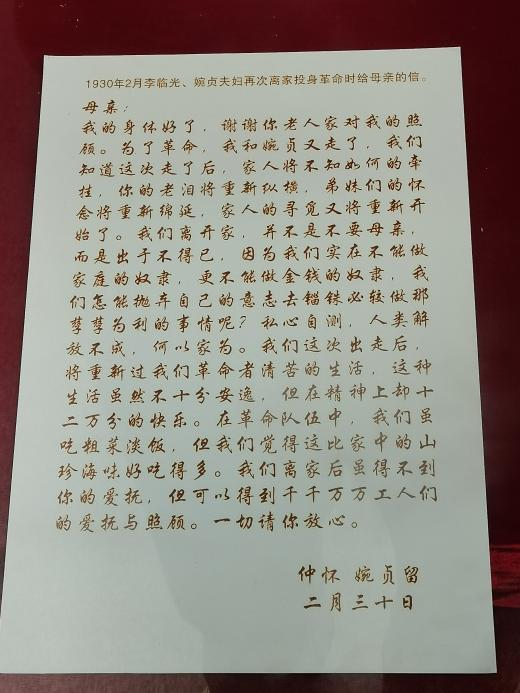 1930年2月李临光、婉贞夫妇再次离家投身革命时给母亲的信。
母亲：
我的身体好了，谢谢你老人家对我的照
顾。为了革命，我和婉贞又走了，我们
知道这次走了后，家人将不知如何的牵
挂，你的老泪将重新纵横，弟妹们的怀
念将重新绵延，家人的寻觅又将重新开
始了。我们离开家，并不是不要母亲，
而是出于不得已，因为我们实在不能做
家庭的奴隶，更不能做金钱的奴隶，我
们怎能抛弃自己的意志去锱铢必较做那
孳孳为利的事情呢？私心自测，人类解
放不成，何以家为。我们这次出走后，
将重新过我们革命者清苦的生活，这种
生活虽然不十分安逸，但在精神上却十
二万分的快乐。在革命队伍中，我们虽
吃粗菜淡饭，但我们觉得这比家中的山
珍海味好吃得多。我们离家后虽得不到
你的爱抚，但可以得到千千万万工人们
的爱抚与照顾。一切请你放心。
仲怀 婉贞留
二月三十日